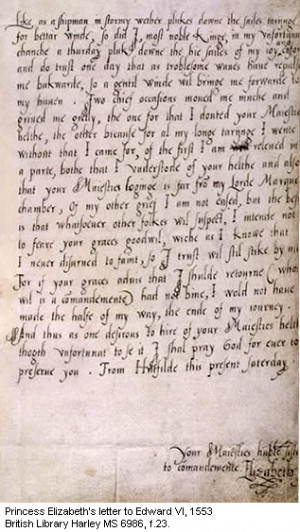 Like as a shipman in stormy wether plukes downe the sailes tarijnge
for bettar winde, so did I, most noble Kinge, in my vnfortuna
chanche a thurday pluk downe the hie sailes of my ioy
and do trust one day that as troblesome wanes haue repulsed
me bakwarde, so a gentil winde wil bringe me forwarde to
my hauen. Two chief occasions moued me muche and
griued me gretly, the one for that I douted your Maiesties
helthe, the other bicause for al my longe tarijnge I wente
without that I came for, of the first I am releued in
a parte, bothe that I vnderstode of your helthe and also
that your Maiesties loginge is far fro my Lorde Marques
chamber, Of my other grief I am not eased, but the best
is that whatsoeuer other folkes wil suspect, I intende not
to feare your graces goodwil, wiche as I knowe that
I neuer disarued to faint, so I trust wil stil stike by me
For if your graces aduis that I shulde retourne (whos
wil is a comandemente) had not bine, I wold not haue
made the halfe of my way, the ende of my iourney.
And thus as one desirous to hire of your Maiesties helth
thogth vnfortunat to se it I shal pray God for euer to
preserue you. From Hatfilde this present saterday.
Your Maiesties huble
to comandemente. Elizabeth
Princess Elizabeth's letter to Edward VI, 1553
British Library Harley MS 6986, f.23.